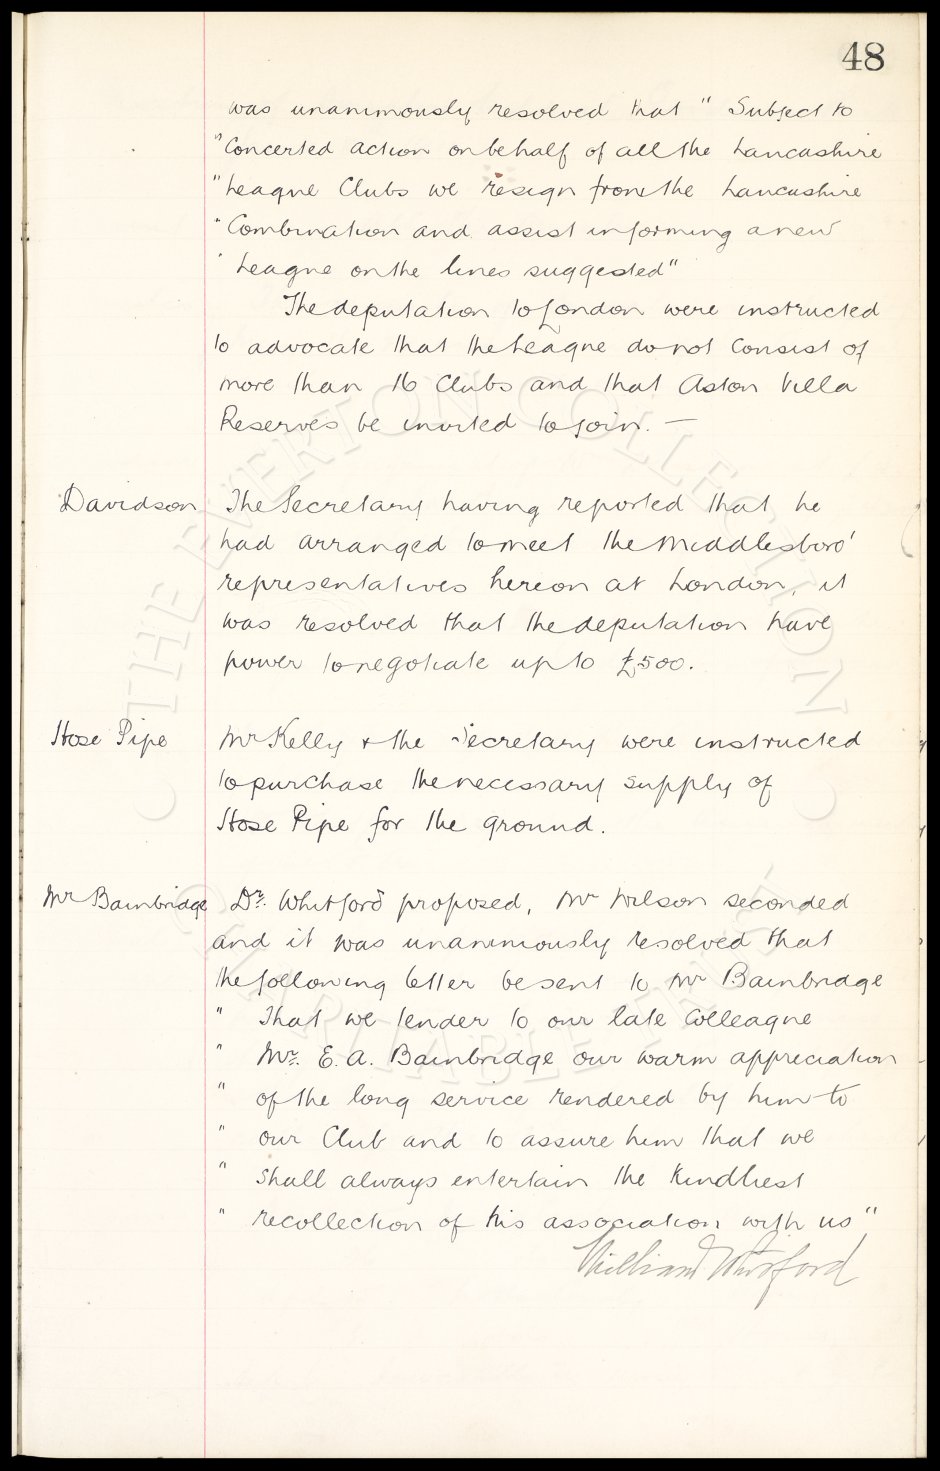 48
was unanimously resolved that " Subject to
"Concerted action on behalf of all the Lancashire
"League Clubs we resign from the Lancashire
"Combination and assist in forming a new
' League on the lines suggested"
The deputation to London were instructed
to advocate that the League do not consist of
more than 16 Clubs and that Aston Villa
Reserves be invited to join. —
Davidson The Secretary having reported that he
had arranged to meet the Middlesboro'
representatives hereon at London, it
was resolved that the deputation have
power to negotiate up to £500.
Hose Pipe Mr Kelly & the Secretary were instructed
to purchase the necessary supply of
Hose Pipe for the ground.
Mr Bainbridge Dr. Whitford proposed, Mr Wilson seconded
and it was unanimously resolved that
the following letter be sent to Mr Bainbridge
" That we tender to our late Colleague
" Mr. E. A. Bainbridge our warm appreciation
" of the long service rendered by him to
" our Club and to assure him that we
" shall always entertain the kindliest
" recollection of his association with us"
William Whitford
© THE EVERTON COLLECTION ©
CHARITABLE TRUST